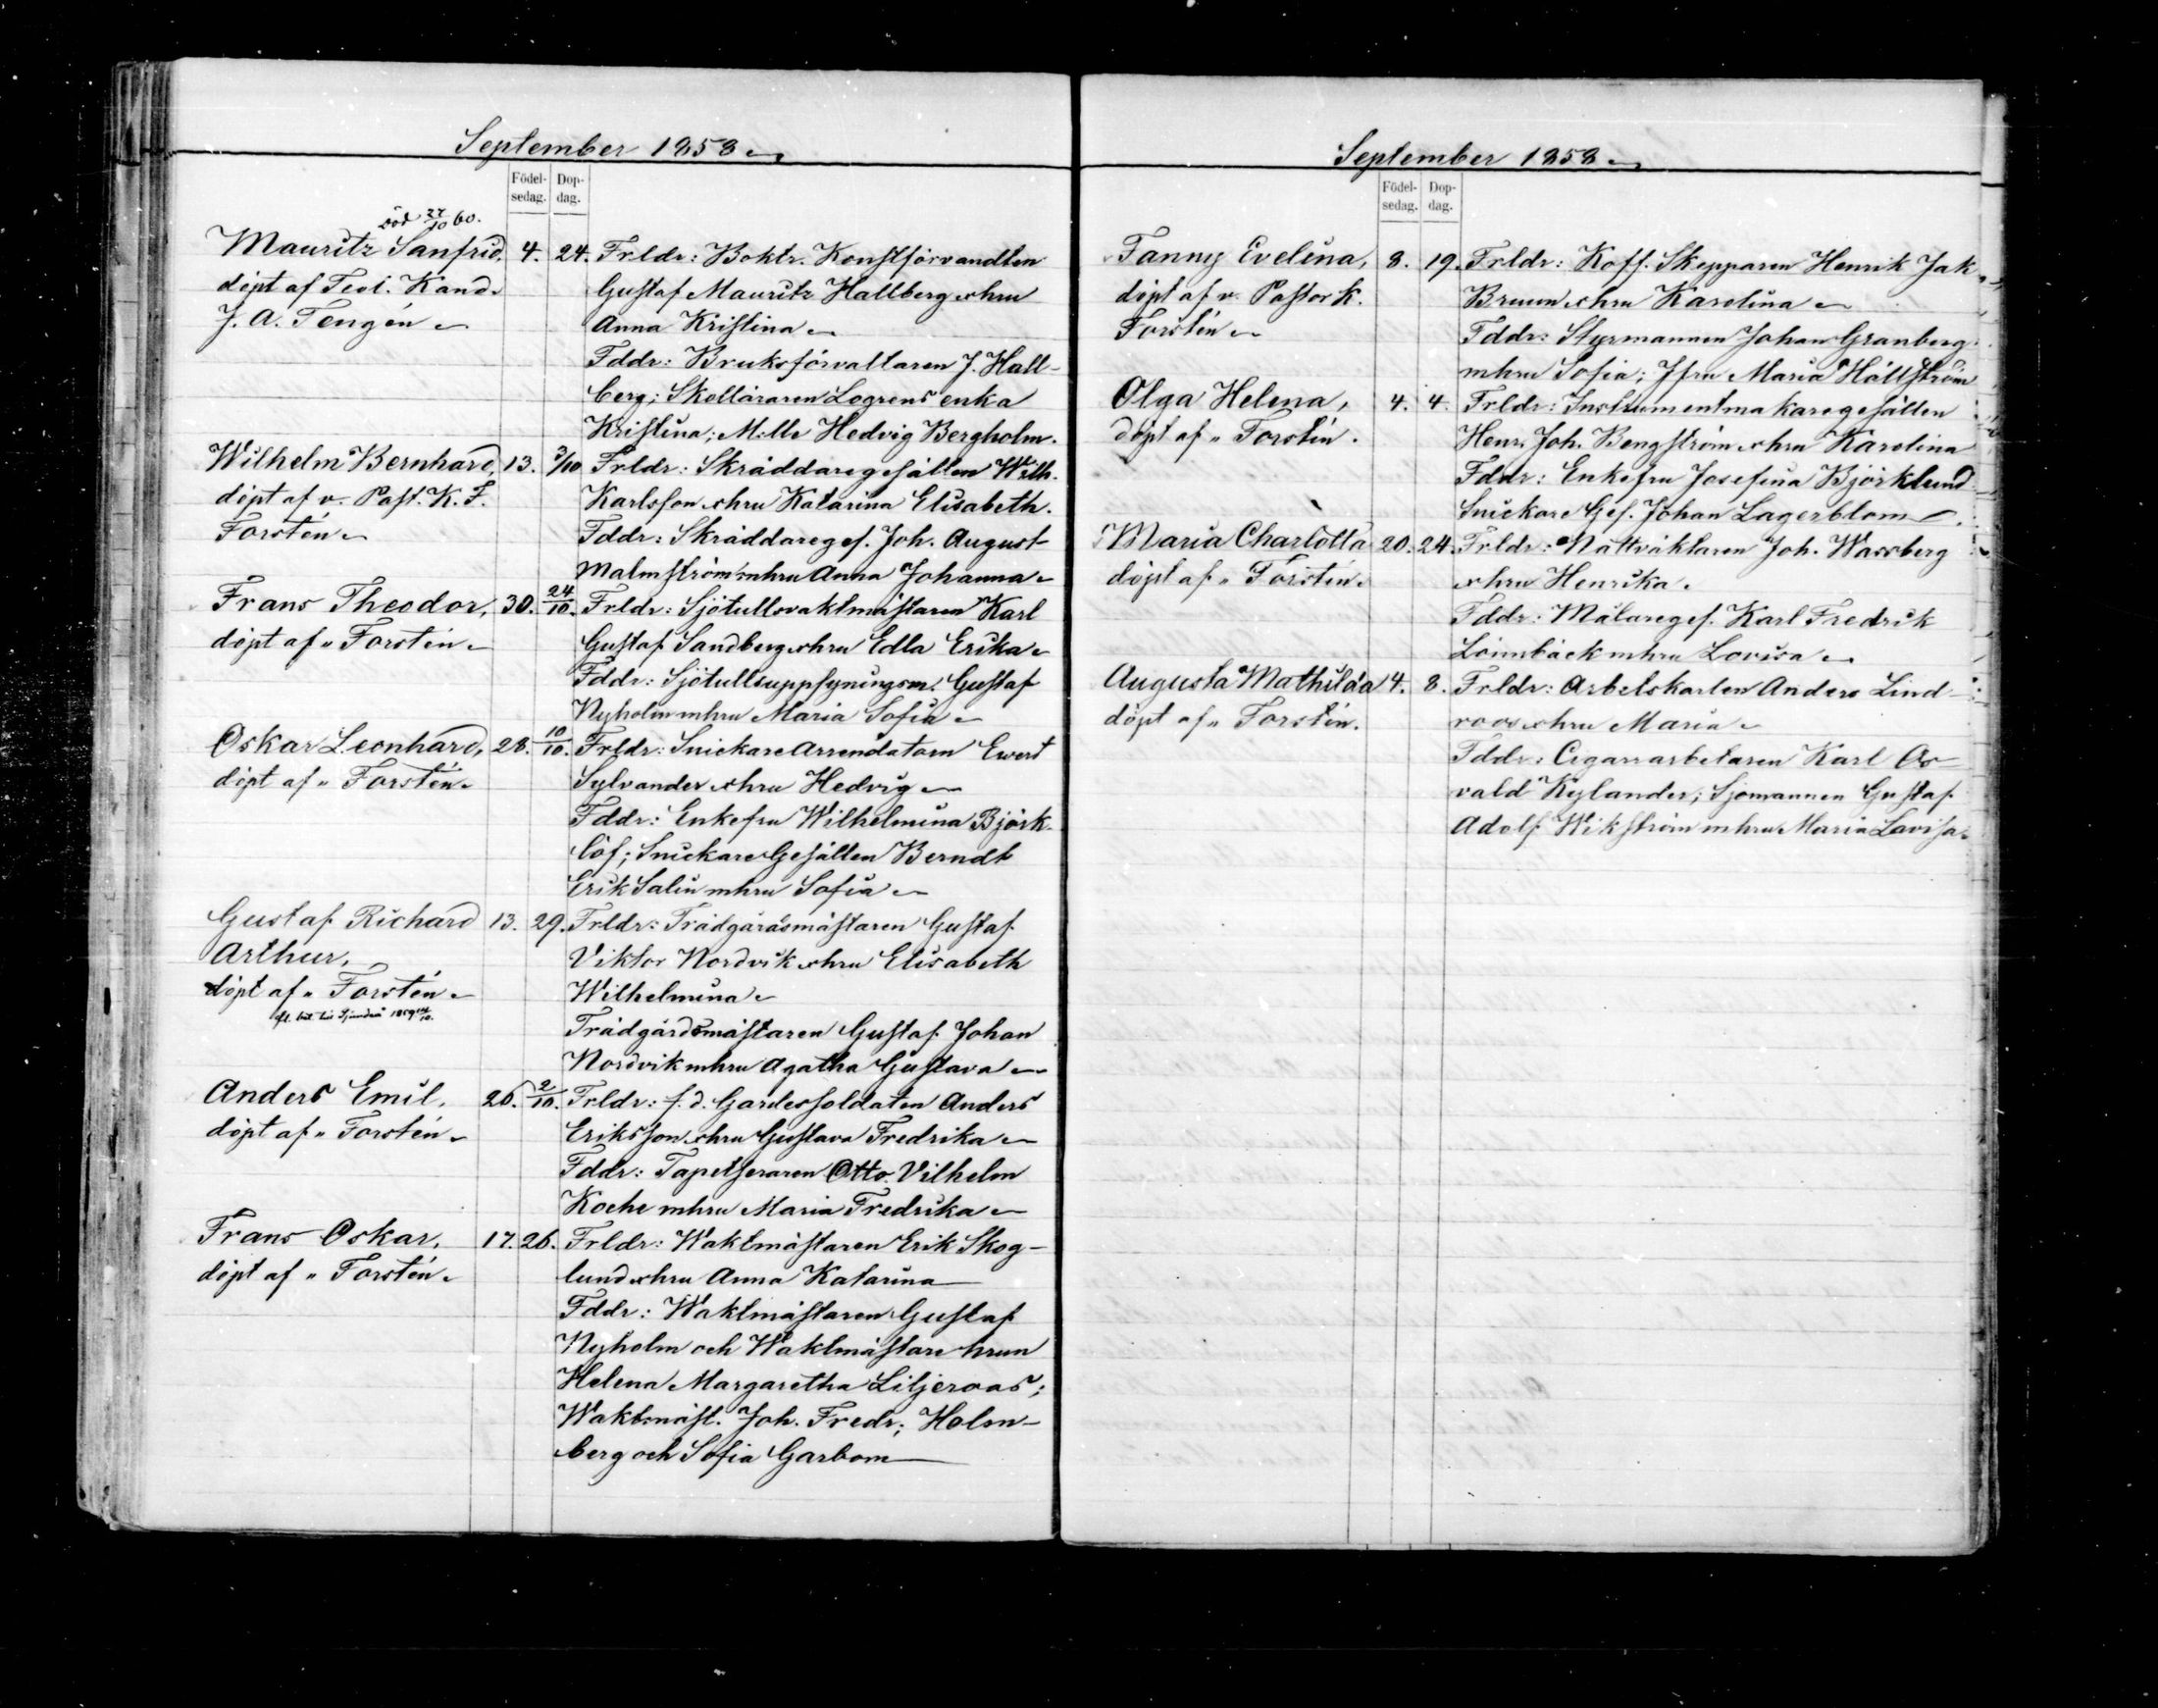 September 1858
Födel- Dop-
sedag. dag.
död 27/10 60.
Mauritz Sanfrid, 4. 24. Frldr: Boktr. Konstförvandten
döpt af Teol. Kand. Gustaf Mauritz Hallberg o hru
J. A. Tengén Anna Kristina
Fddr: Bruksförvaltaren J. Hall-
berg; Skolläraren Logrens enka
Kristina; M:lle Hedvig Bergholm.
Wilhelm Bernhard, 13. 3/10 Frldr: Skräddaregesällen Wilh.
döpt af v. Past. K. F. Karlsson o hru Katarina Elisabeth.
Forstén Fddr: Skräddareges. Joh. August
Malmström m hru Anna Johanna
Frans Theodor, 30. 24/10. Frldr: Sjötullsvaktmästaren Karl
döpt af " Forstén Gustaf Sandberg o hru Edla Erika
Fddr: Sjötullsuppsyningsm. Gustaf
Nyholm m hru Maria Sofia
Oskar Leonhard, 28. 10/10. Frldr: Snickare Arrendatorn Ewert
döpt af " Forstén Sylvander o hru Hedvig
Fddr: Enkefru Wilhelmina Björk-
löf; Snickare Gesällen Berndt
Erik Salin m hru Sofia
Gustaf Richard 13. 29. Frldr: Trädgårdsmästaren Gustaf
Arthur, Viktor Nordvik o hru Elisabeth
döpt af " Forstén Wilhelmina
fl. bet. till Sjundeå 1859
Trädgårdsmästaren Gustaf Johan
Nordvik m hru Agatha Gustava
Anders Emil, 26. 2/10. Frldr: f. d. Gardessoldaten Anders
döpt af " Forstén Eriksson o hru Gustava Fredrika
Fddr: Tapetseraren Otto Vilhelm
Koche m hru Maria Fredrika
Frans Oskar, 17. 26. Frldr: Waktmästaren Erik Skog-
döpt af " Forstén lund o hru Anna Katarina
Fddr: Waktmästaren Gustaf
Nyholm och Waktmästare hrun
Helena Margaretha Liljeroos;
Waktmäst. Joh. Fredr. Holm-
berg och Sofia Garbom
September 1858
Födel- Dop-
sedag. dag.
Fanny Evelina, 8. 19. Frldr: Koff. Skepparen Henrik Jak
döpt af v. Pastor K. Bruun o hru Karolina
Forstén Fddr: Styrmannen Johan Granberg
m hru Sofia; Jfru Maria Hällström
Olga Helena, 4. 4. Frldr: Instrumentmakaregesällen
döpt af " Forstén. Henr. Joh. Bengström o hru Karolina
Fddr: Enkefru Josefina Björklund
Snickare Ges. Johan Lagerblom
Maria Charlotta 20. 24. Frldr: Nattväktaren Joh. Wassberg
döpt af " Forstén. o hru Henrika.
Fddr: Målareges. Karl Fredrik
Lönnbäck m hru Lovisa
Augusta Mathilda 4. 8. Frldr: Arbetskarlen Anders Lind-
döpt af " Forstén. roos o hru Maria
Fddr: Cigarrarbetaren Karl Os-
vald Kylander; Sjömannen Gustaf
Adolf Wikström m hru Maria Lovisa